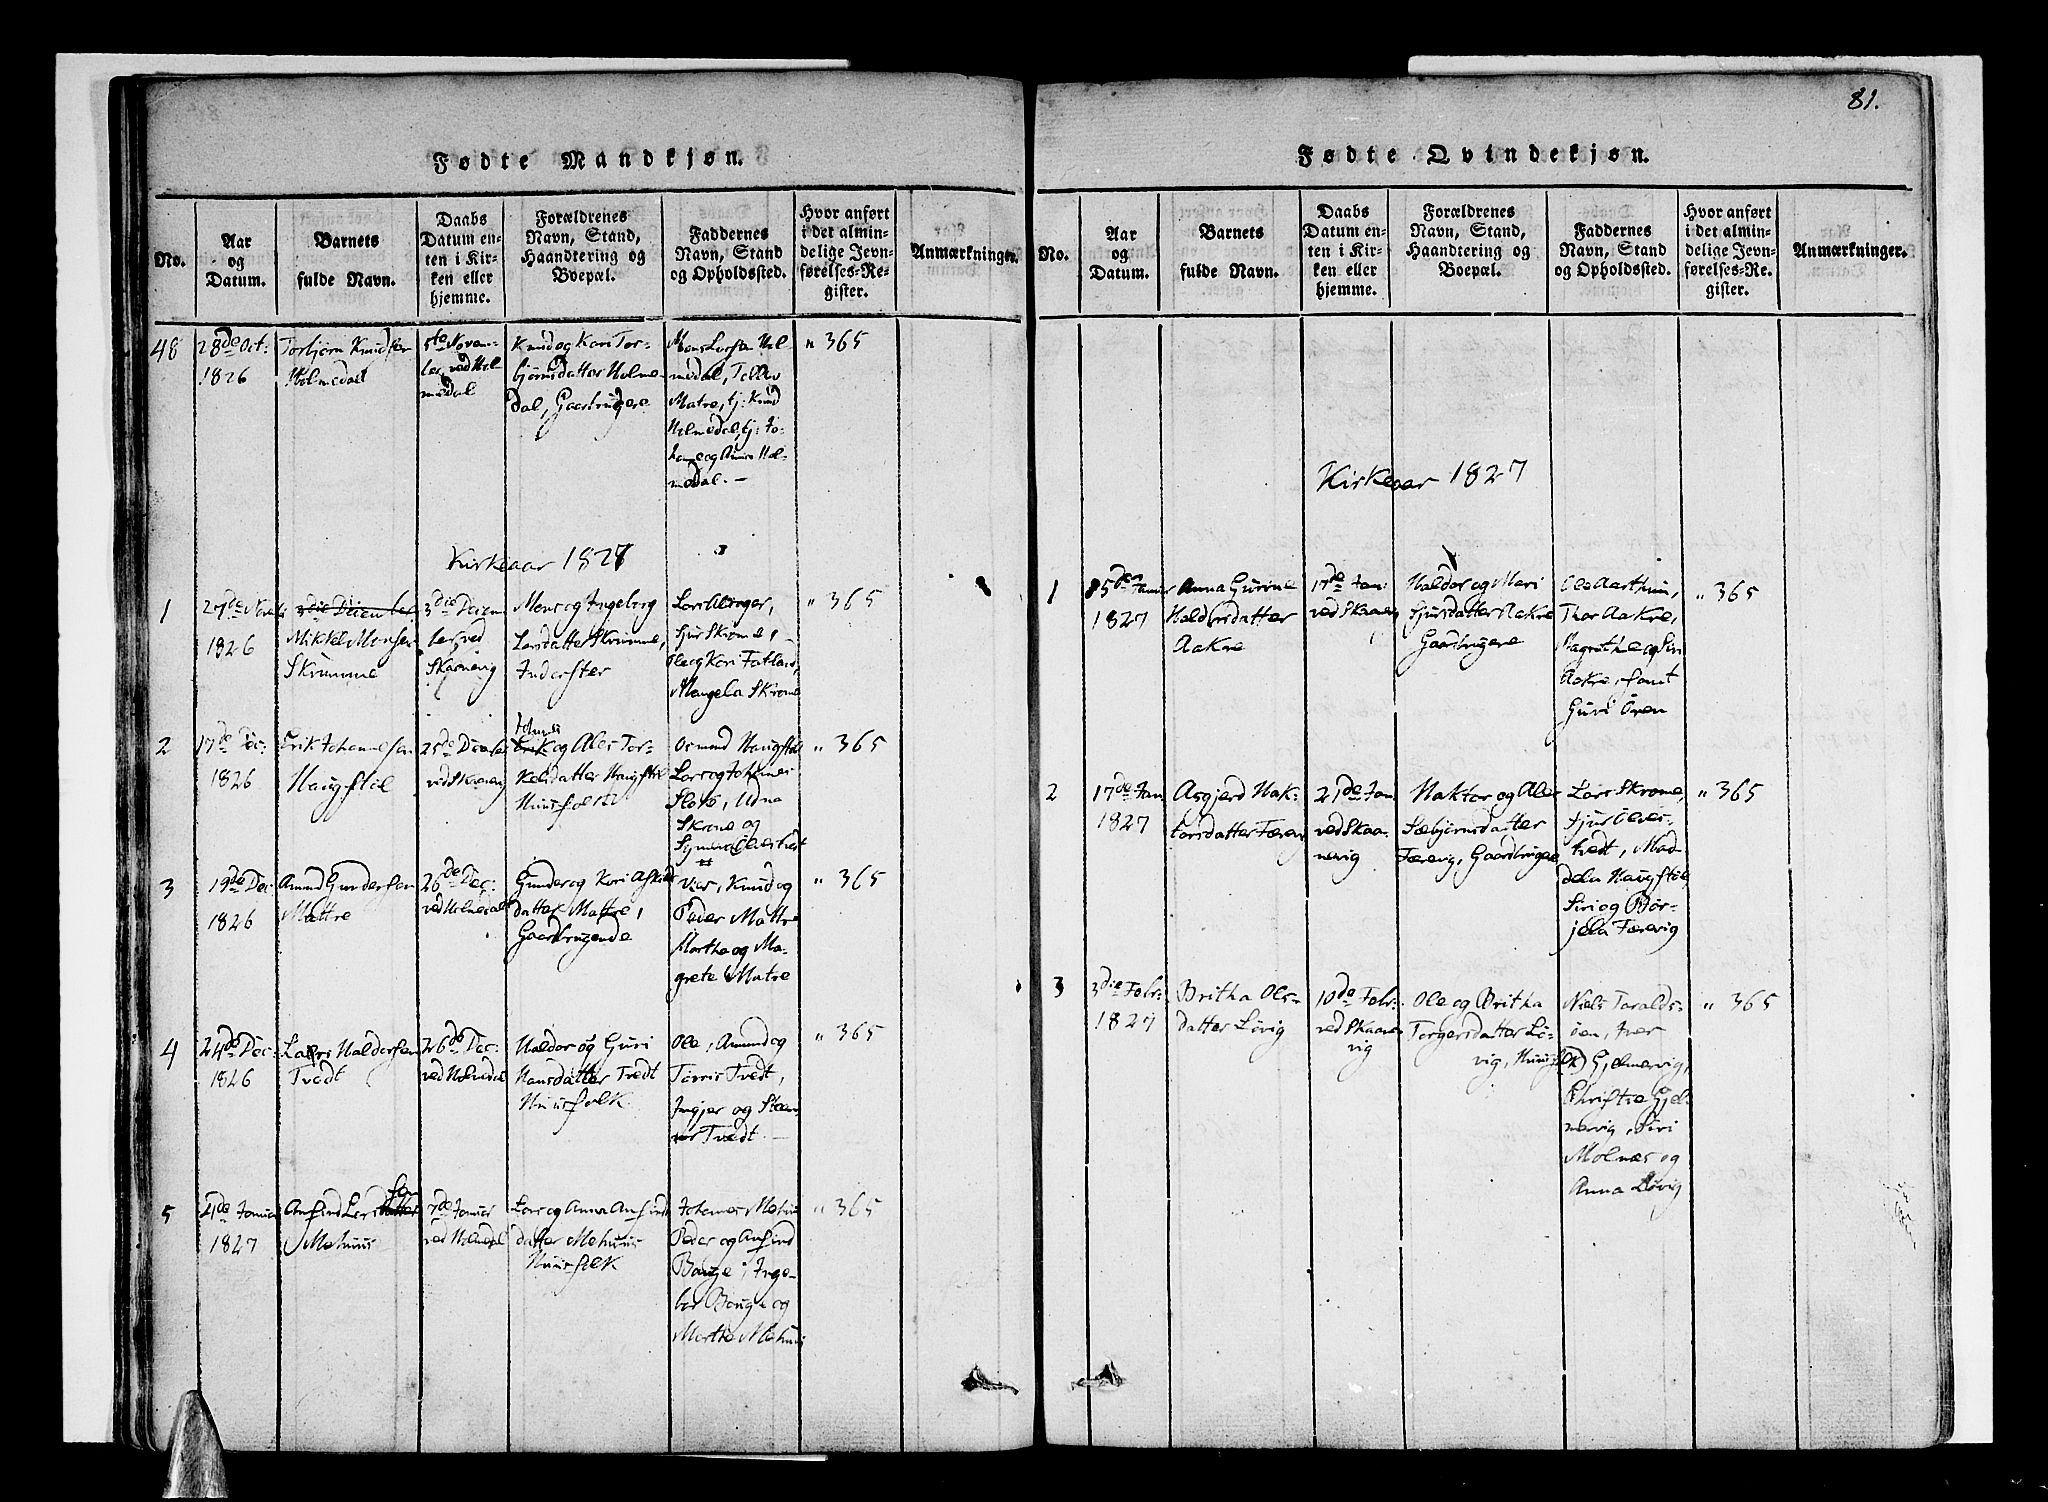 81.
Fødte Mandkjøn.
No.
Aar
og
Datum.
Barnets
fulde Navn.
Daabs
Datum en-
ten i Kir-
ken eller
hjemme.
Forældrenes
Navn, Stand,
Haandtering og
Boepæl.
Faddernes
Navn, Stand
og Opholdssted.
Hvor anført
i det almin-
delige Jevn-
førelses-Re-
gister.
Anmærkninger.
48
28de Oct:
1826
Torbjørn Knudsen
Holmedal
5te Novem-
ber ved Hol
medal
Knud og Kari Tor-
bjørnsdatter Holme-
dal, Gaardbrugere
Mons Larsen Hol-
medal,
Matre, tj: Knud
Holmedal, tj: Jo-
og Hol-
medal. —
" 365
Kirkeaar 1827
1
27de Novbr
1826
3die December
Mikkel Monsen
Skrumme
3die Decem
ber ved
Skaanevig
Mons og Ingeborg
Larsdatter Skrumme,
Inderster
Lars
Sjur Skrome,
Ole og Kari Fatland,
Mangela Skrome
" 365
2
17de Dec:
1826
Erik Johannesen
Haugstøl
25de Decbr
ved Skaanevig
Johannes
Erik og Ales Tor-
kelsdatter Haugstøl
Huusfolk
Osmund Haugstøl
Lars og Johannes
Skrome og
" 365
3
19de Dec:
1826
Amund Gundersen
Mattre
26de Dec:
ved Holmedal
Gunder og Kari
datter Mattre,
Gaardbrugende
Knud og
Peder Mattre
Marthe og Ma-
grete Matre
" 365
4
24de Dec:
1826
Lars Haldorsen
Tvedt
26de Dec:
ved Holmedal
Haldor og Guri
Hansdatter Tvedt
Huusfolk
Ole, Amund og
Torris Tvedt,
Ingjer og Steen-
vor Tvedt —
" 365
5
Januar
1827
Anfind Lars datter
sen
Mehuus
7de Januar
ved Holmedal
Lars og Anna Anfinds
datter Mehuus
Huusfolk
Johannes Mehuus
Peder og Anfind
Bauge, Inge-
bor Bauge og
Marthe Mehuus
" 365
Fødte Qvindekjøn.
No.
Aar
og
Datum.
Barnets
fulde Navn.
Daabs
Datum en-
ten i Kir-
ken eller
hjemme.
Forældrenes
Navn, Stand,
Haandtering og
Boepæl.
Faddernes
Navn, Stand
og Opholdssted.
Hvor anført
i det almin-
delige Jevn-
førelses-Re-
gister.
Anmærkninger.
Kirkeaar 1827
1
5den Januar
1827
Anna Gurine
Haldorsdatter
Aakre
17de Jan:
ved Skaanevig
Haldor og Mari
Sjursdatter Aakre
Gaardbrugere
Ole Aarthun,
Thor Aakre,
Magrethe og Siri
Aakre, samt
Guri Øren
" 365
2
17de Jan
1827
Asgjerd Hak-
torsdatter Færevig
21de Jan:
ved Skaa-
nevig
Haktor og Ales
Sæbjørnsdatter
Færevig, Gaardbrugere
Lars Skrome,
Sjur Oever-
tvedt, Mad-
dela Haugstøl,
Siri og Bør-
jela Færevig
" 365
3
3die Febr:
1827
Britha Ols-
datter Løvig
10de Febr:
ved Skaane-
vig
Ole og Britha
Torgersdatter Lø-
vig, Huusfolk
Niels Taralds-
øen, Iver
Gjelmervig,
Christne Gjel-
mervig, Siri
Molnæs og
Anna Løvig
" 365